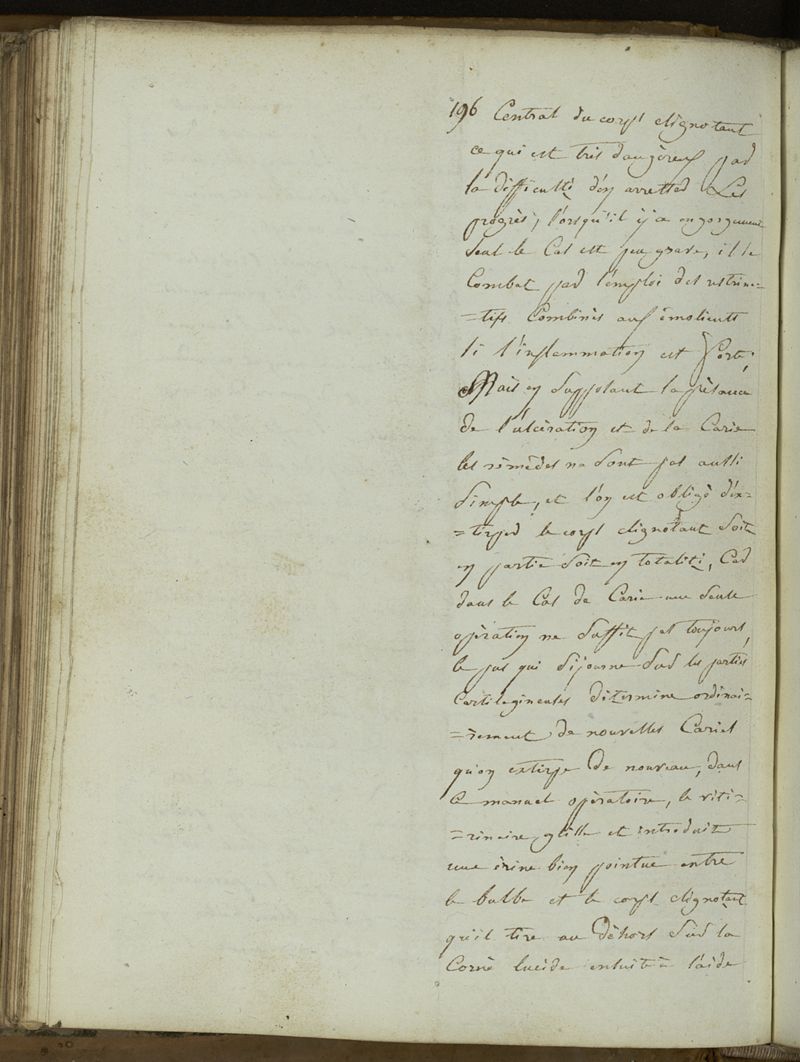 196 Central du corps clignotant
ce qui est très dangèreux par
la difficulté d'en arretter Les
progrès, l'orsqu'il y a engorgement
Seul le Cas est peu grave, il se
Combat par l'emploi des restrinc=
=tifs Combinés aux émolients
si l'inflammation est forte.
Mais en Supposant la présence
de l'ulcération et de la Carie
les rémèdes ne Sont pas aussi
Simple, et l'on est obligé d'ex=
=tirper le corps clignotant Soit
en partie Soit en totalité, Car
dans le Cas de Carie une Seule
opèration ne Suffit pas toujours,
le pus qui Séjourne Sur les parties
Cartilegineuses détermine ordinai=
=rement de nouvelles Caries
qu'on extirpe de nouveau, dans
le manuel opèratoire, le vété=
=rinaire et introduit
une érine bien pointue entre
le bulbe et le corps clignotant
qu'il tire au déhors Sur la
Corné lucide ensuite à l'aide